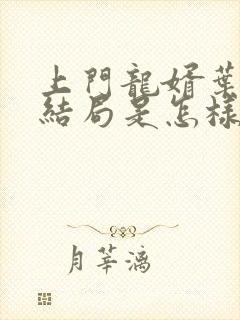 上門龍婿葉
結局是怎樣
月華漓